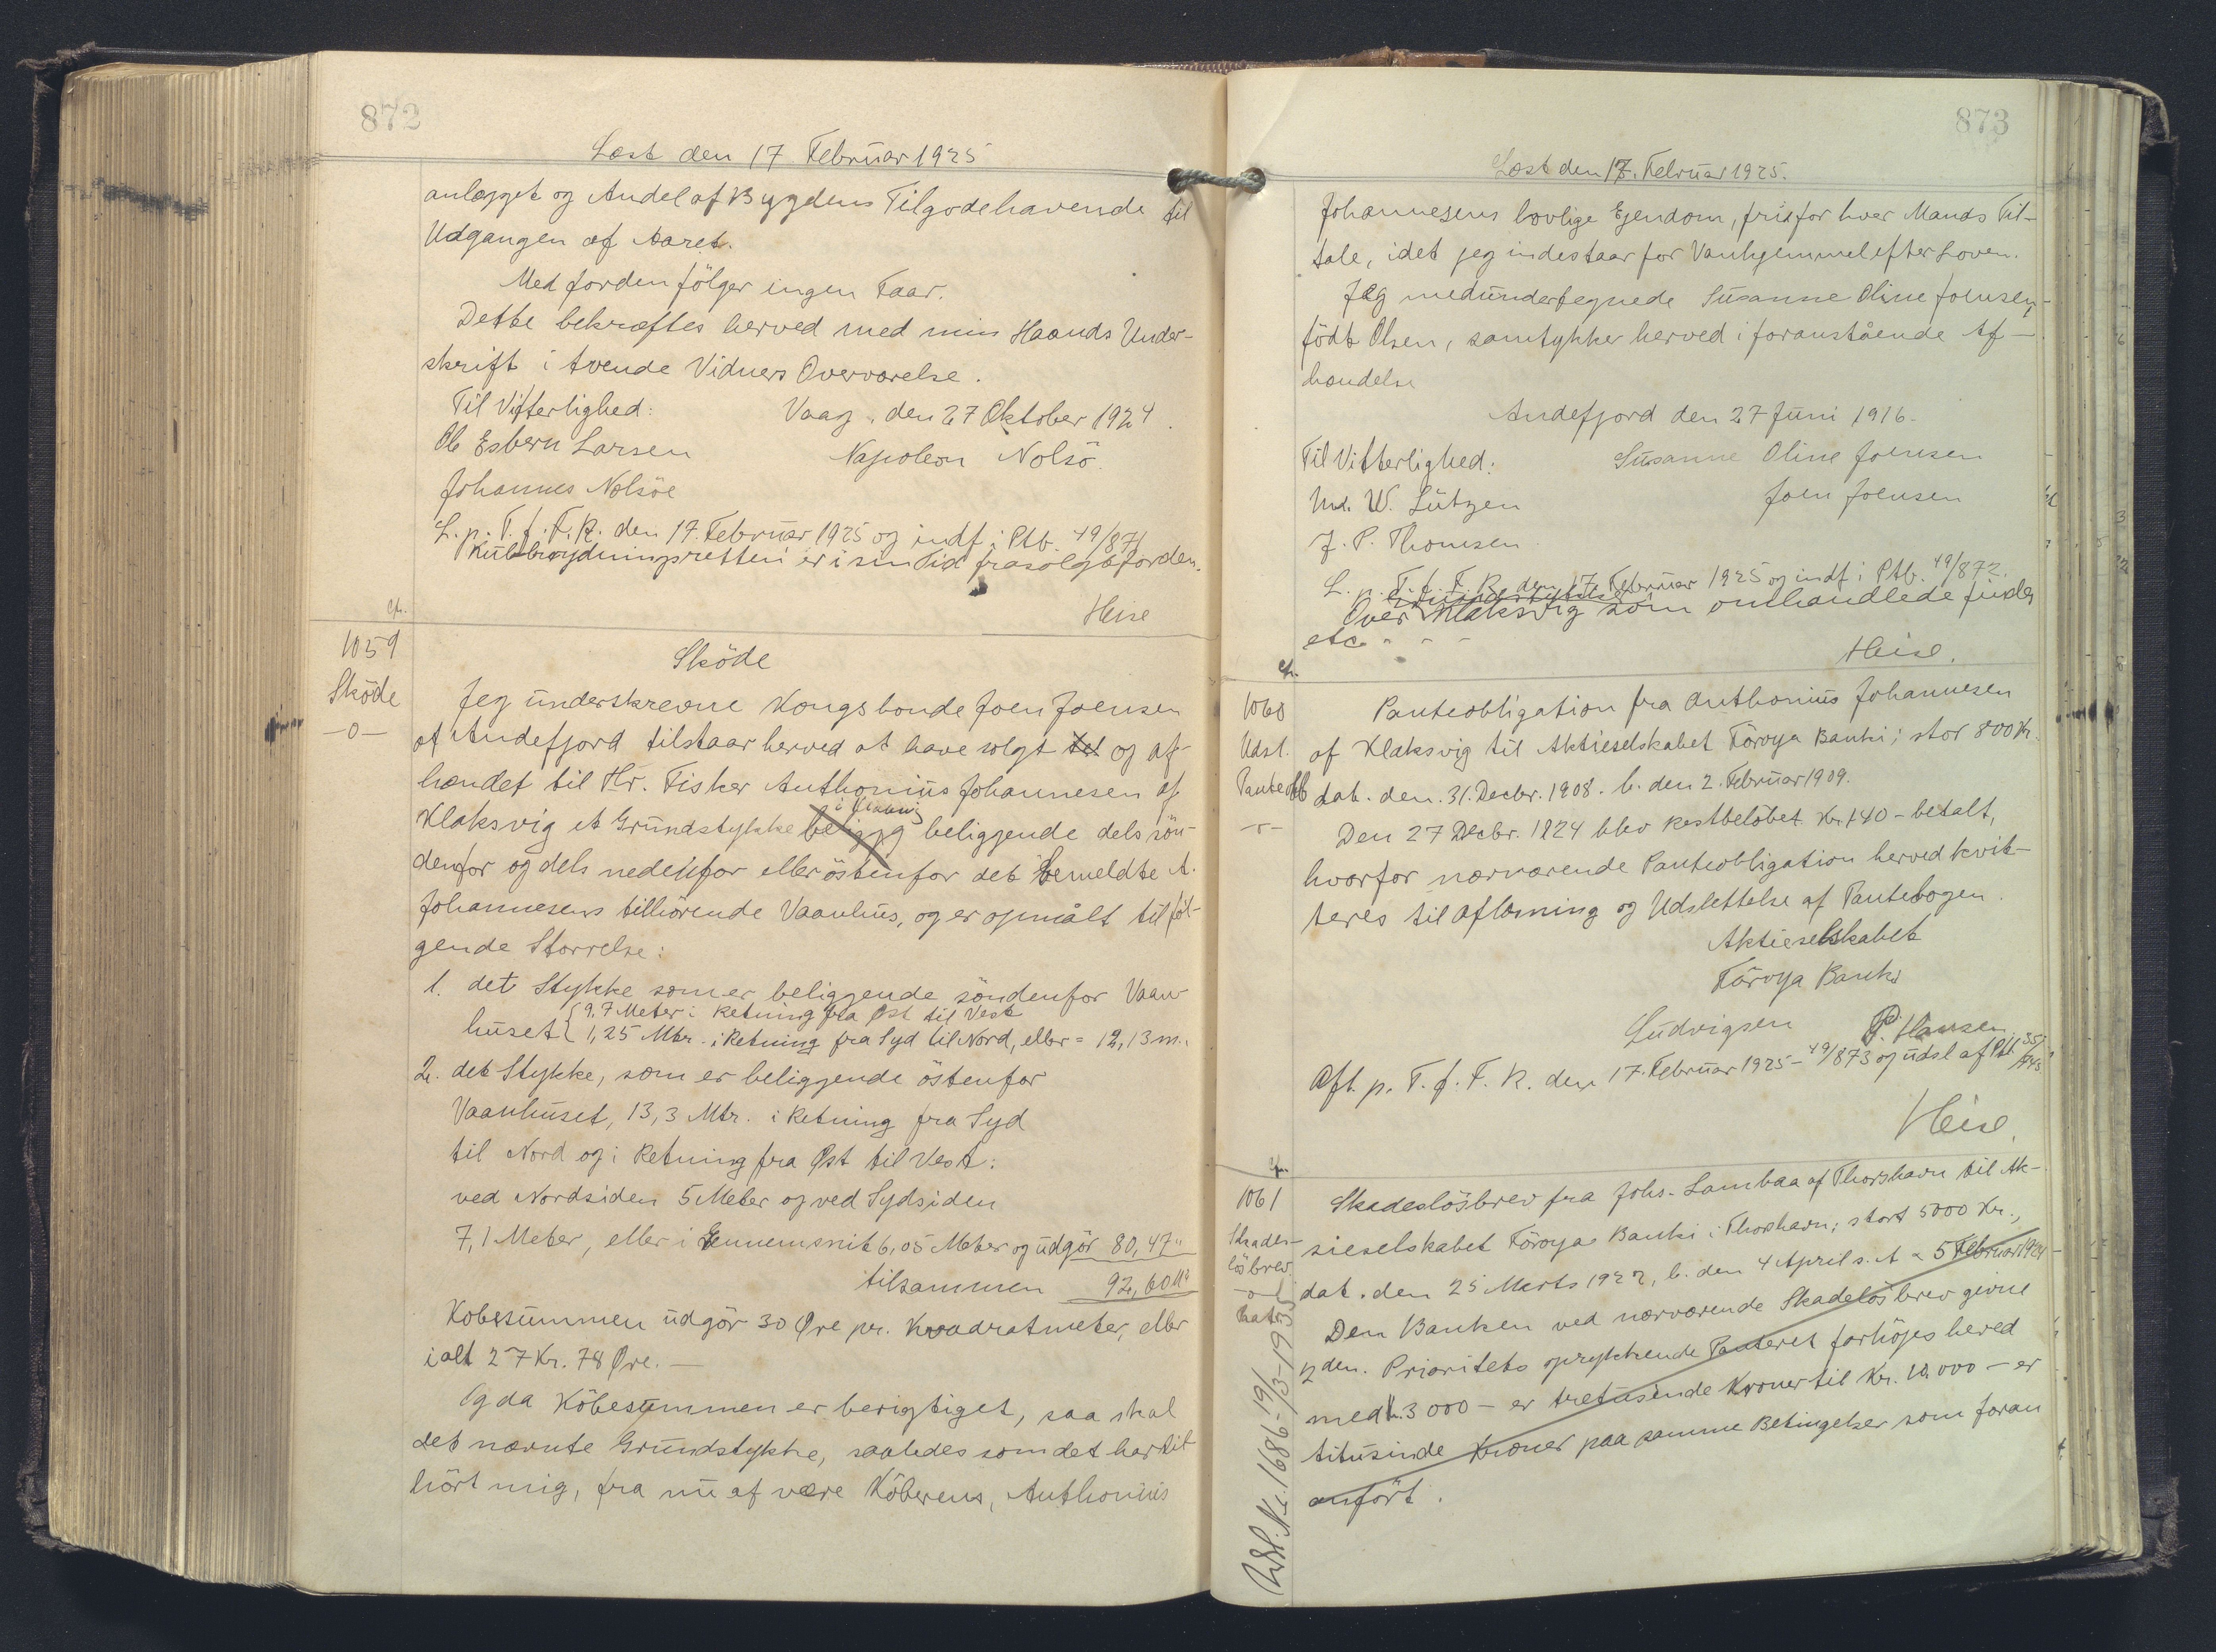 872
Læst den 17 Februar 1925
anlægget og Andel af Bygdens Tilgodehavende til
Udgangen af Aaret.
Med Jorden fölger ingen Faar.
Dette bekræftes herved med min Haands Under-
skrift i tvende Vidners Overværelse.
Til Vitterlighed: Vaag, den 27 Oktober 1924.
Ole Esbern Larsen Napoleon Nolsö.
Johannes Nolsöe
L. p. T. f. F. R. den 17. Februar 1925 og indf. i Ptb. 49/871
Kulbrydningsretten er i sin Tid frasolgt Jorden.
Heise
1059
Sköde
-o-
Sköde
Jeg underskrevne Kongsbonde Joen Joensen
af Andefjord tilstaar herved at have solgt til og af-
hændet til Hr. Fisker Anthonius Johannesen af
i Klaksvig
Klaksvig et Grundstykke beligg beliggende dels sön-
denfor og dels nedenfor eller östenfor det bemeldte A.
Johannesens tilhörende Vaanhus, og er opmålt til föl-
gende Störrelse:
1. det Stykke som er beliggende söndenfor Vaan-
{ 9,7 Meter i Retning fra Øst til Vest
huset { 1,25 Mtr. i Retning fra Syd til Nord, eller = 12,13 m.
2. det Stykke, som er beliggende östenfor
Vaanhuset, 13,3 Mtr. i Retning fra Syd
til Nord og i Retning fra Øst til Vest:
ved Nordsiden 5 Meter og ved Sydsiden
7,1 Meter, eller i Gennemsnit 6,05 Meter og udgör 80,47 "
tilsammen 92,60 M²
Kobesummen udgör 30 Øre pr. Kvadratmeter, eller
ialt 27 Kr. 78 Øre. —
Og da Köbesummen er berigtiget, saa skal
det nævnte Grundstykke, saaledes som det har til-
hört mig, fra nu af være Köberens, Anthonius
873
Læst den 17. Februar 1925.
Johannesens lovlige Ejendom, fri for hver Mands Til-
tale, idet jeg indestaar for Vanhjemmel efter Loven.
Jeg medundertegnede Susanne Oline Joensen,
födt Olsen, samtykker herved i foranstående Af-
hændelse
Andefjord den 27 Juni 1916.
Til Vitterlighed: Susanne Oline Joensen
W. Lützen Joen Joensen
J. P. Thomsen
L. p. T. f. F. R. den 17. Februar 1925 og indf. i Ptb. 49/872.
Over Klaksvig som omhandlede findes
etc - - -
Heise.
1060
Udsl.
Panteobl
-o-
Panteobligation fra Anthonius Johannesen
af Klaksvig til Aktieselskabet Föroya Banki; stor 800 Kr.
dat. den. 31. Decbr. 1908. l. den 2. Februar 1909.
Den 27 Decbr. 1924 blev Restbelöbet Kr. 140 - betalt,
hvorfor nærværende Panteobligation herved kvit-
teres til Aflæsning og Udslettelse af Pantebogen.
Aktieselskabet
Föroya Banki
Ludvigsen P. Hansen
Afl. p. T. f. F. R. den 17. Februar 1925 - 49/873 og udsl. af Ptb. 35/
Heise.
1061
Skades-
lösbrev
-o-
Skadeslösbrev fra Johs. Lambaa af Thorshavn til Ak-
tieselskabet Föroya Banki i Thorshavn; stort 5000 Kr.,
dat. den 25 Marts 1922, l. den 4 April s. A & 5 Februar 1924
Den Banken ved nærværende Skadelösbrev givne
2den. Prioritets oprykkende Panteret forhöjes herved
med Kr. 3000 - er tretusinde Kroner til Kr. 10,000 - er
titusinde Kroner paa samme Betingelser som foran
anfört.
Udsl. Nr. 1686 - 19/3 - 1935